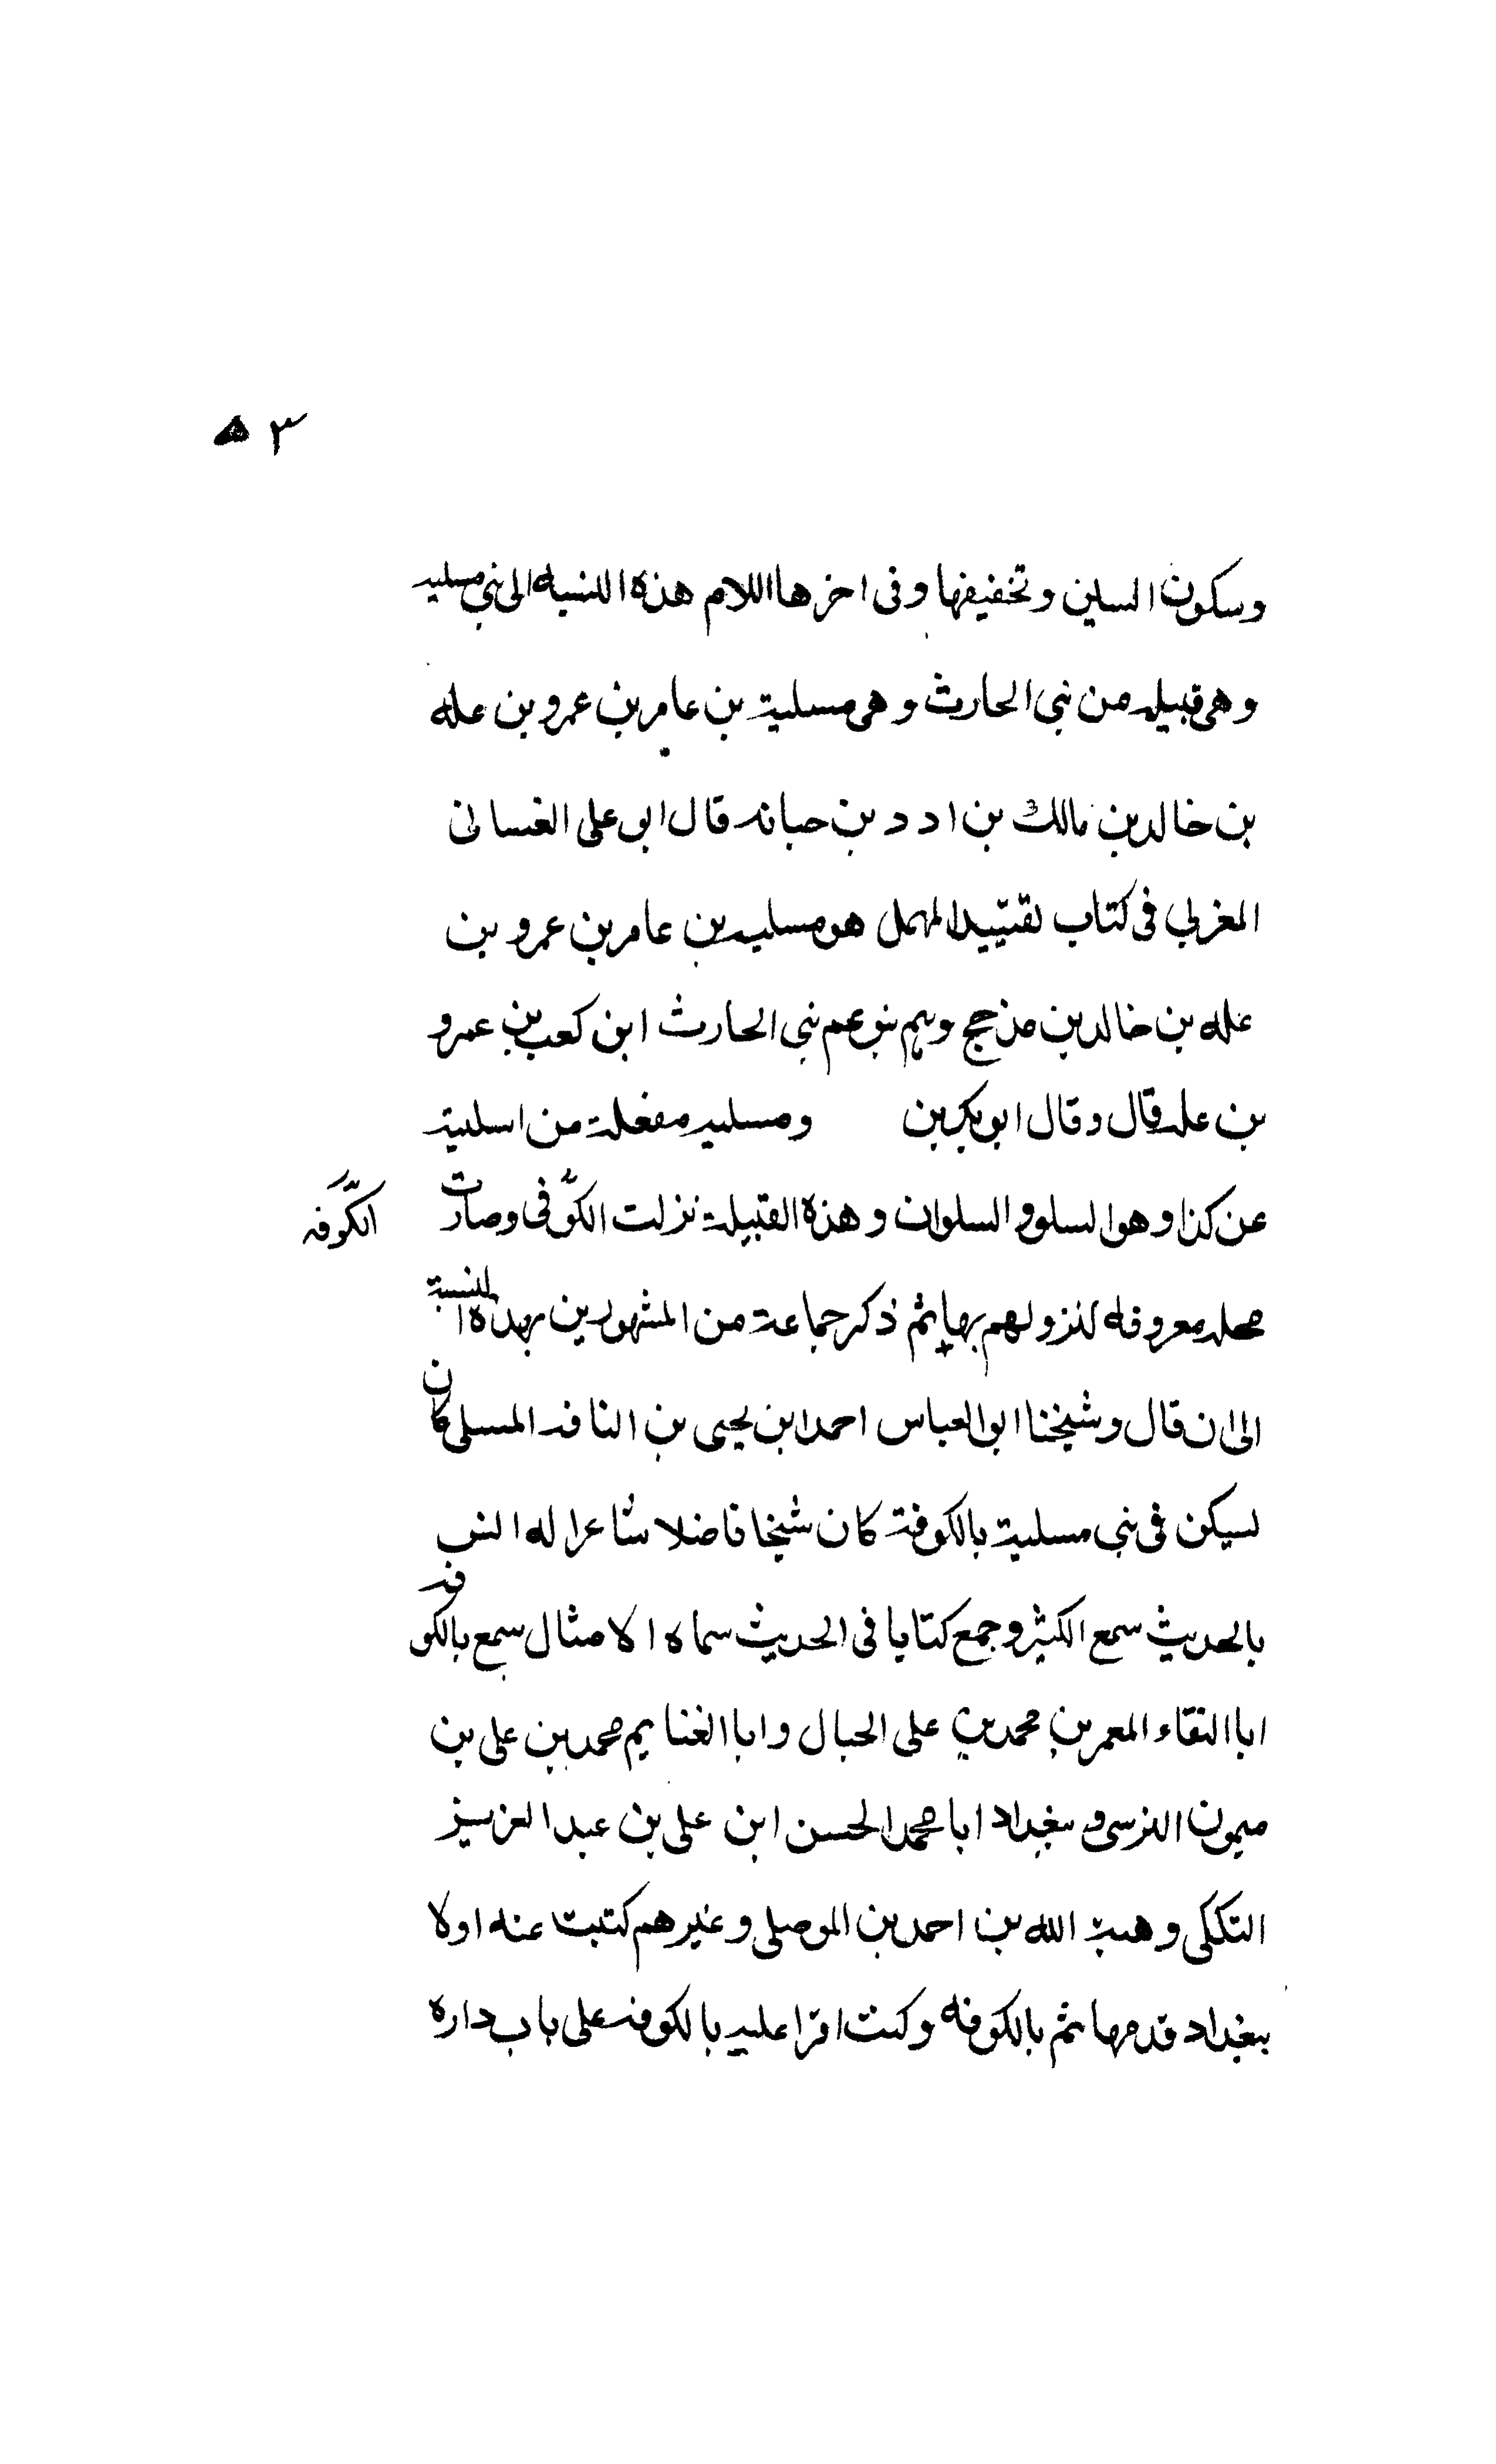 ٥٣
وسكون السين وتخفيفها وفى اخرها اللام هذه النسبه الى بنى مسليه
وهى قبيله من بنى الحارث وهى مسلية بن عامر بن عمرو بن عله
بن خالد بن مالك بن ادد بن حبانه قال ابو على الغسانى
المغربى فى كتاب تقييد المهمل هو مسليه بن عامر بن عمرو بن
عله بن خالد بن مذحج وهم بنو عم بنى الحارث ابن كعب بن عمرو
بن عله قال وقال ابو بكر بن ومسليه مفعلة من اسلية
عن كذا وهو السلو والسلوان وهذه القبيلة نزلت الكوفى وصارت
الكوفه
محله معروفه لنزولهم بها ثم ذكر جماعة من المشهورين بهذه النسبة
الى ان قال وشيخنا ابو العباس احمد ابن يحيى بن الناقه المسلى كان
يسكن فى بنى مسلية بالكوفة كان شيخا فاضلا شاعرا له انس
بالحديث سمع الكثير وجمع كتابا فى الحديث سماه الامثال سمع بالكوفه
ابا البقاء المعمر بن محمد بن على الحبال وابا الغنايم محمد بن على بن
ميمون النرسى و ببغداد ابا محمد الحسن ابن على بن عبد العزيز
التككى وهبة الله بن احمد بن الموصلى وغيرهم كتبت عنه اولا
ببغداد قدمها ثم بالكوفه وكنت اقرا عليه بالكوفه على باب داره